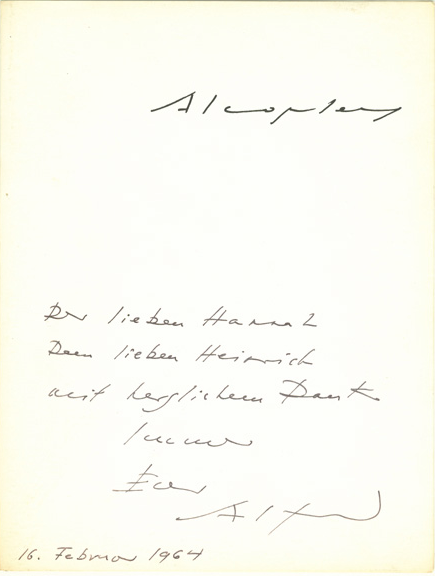 Alcopley
Der lieben Hannah
Dem lieben Heinrich
mit herzlichem Dank
Immer
Euer
Alfred
16. Februar 1964